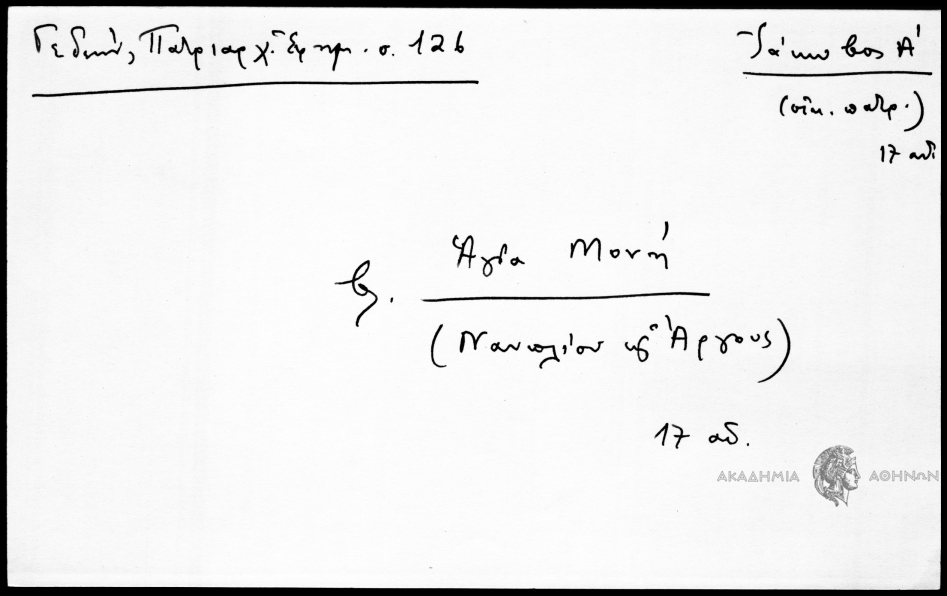 Γεδεών, Πατριαρχ. Ἐφημ. σ. 126
Ἰάκωβος Α΄
(οἰκ. πατρ.)
17 αἰ
Ἁγία Μονή
βλ.
(Ναυπλίου κ Ἄργους)
17 αἰ.
ΑΚΑΔΗΜΙΑ ΑΘΗΝΩΝ